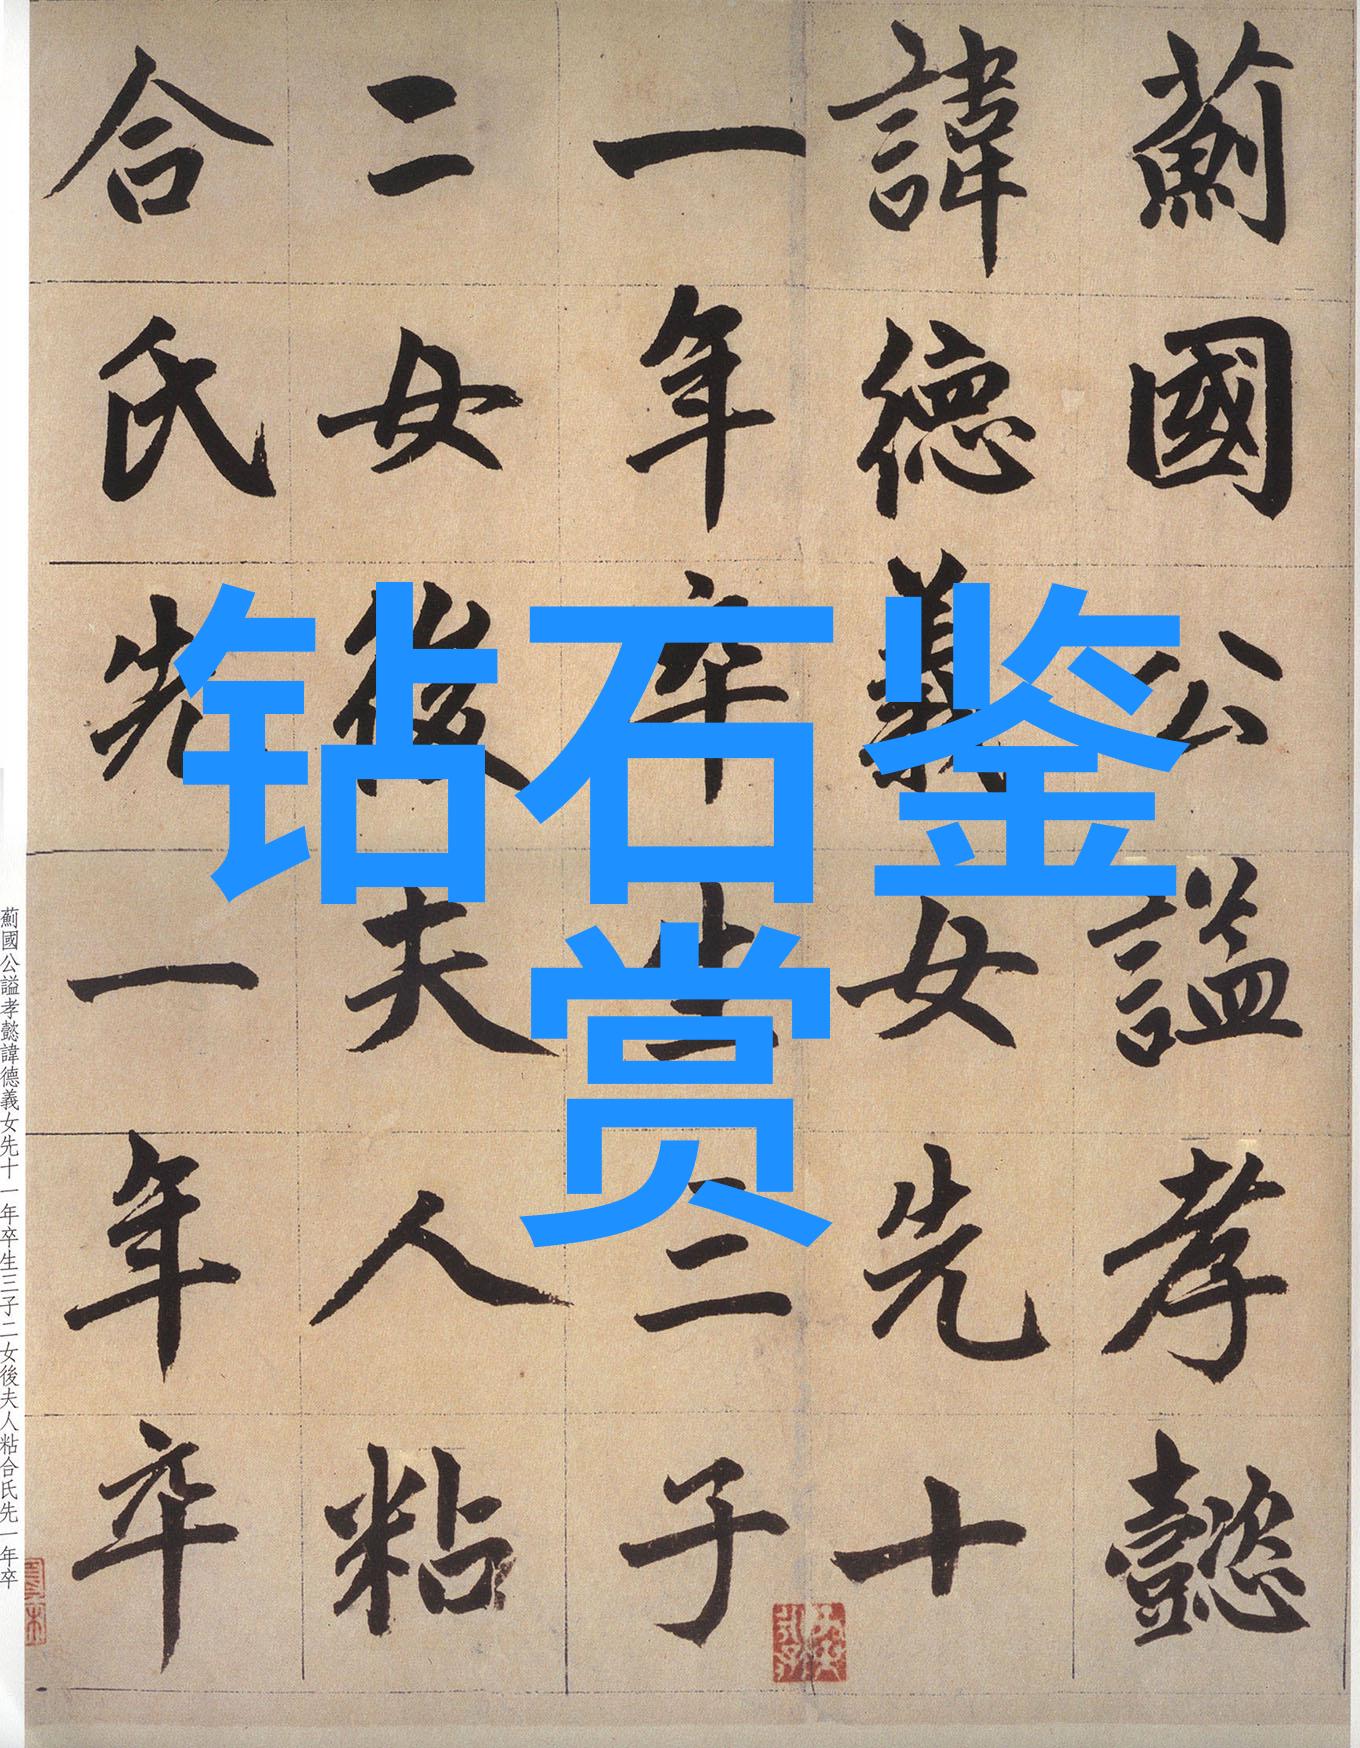 薊國公謚孝懿
諱德義女先十
一年卒生三子
二女後夫人粘
合氏先一年卒
钻石鉴
赏
薊國公謚孝懿諱德義女先十一年卒生三子二女後夫人粘合氏先一年卒